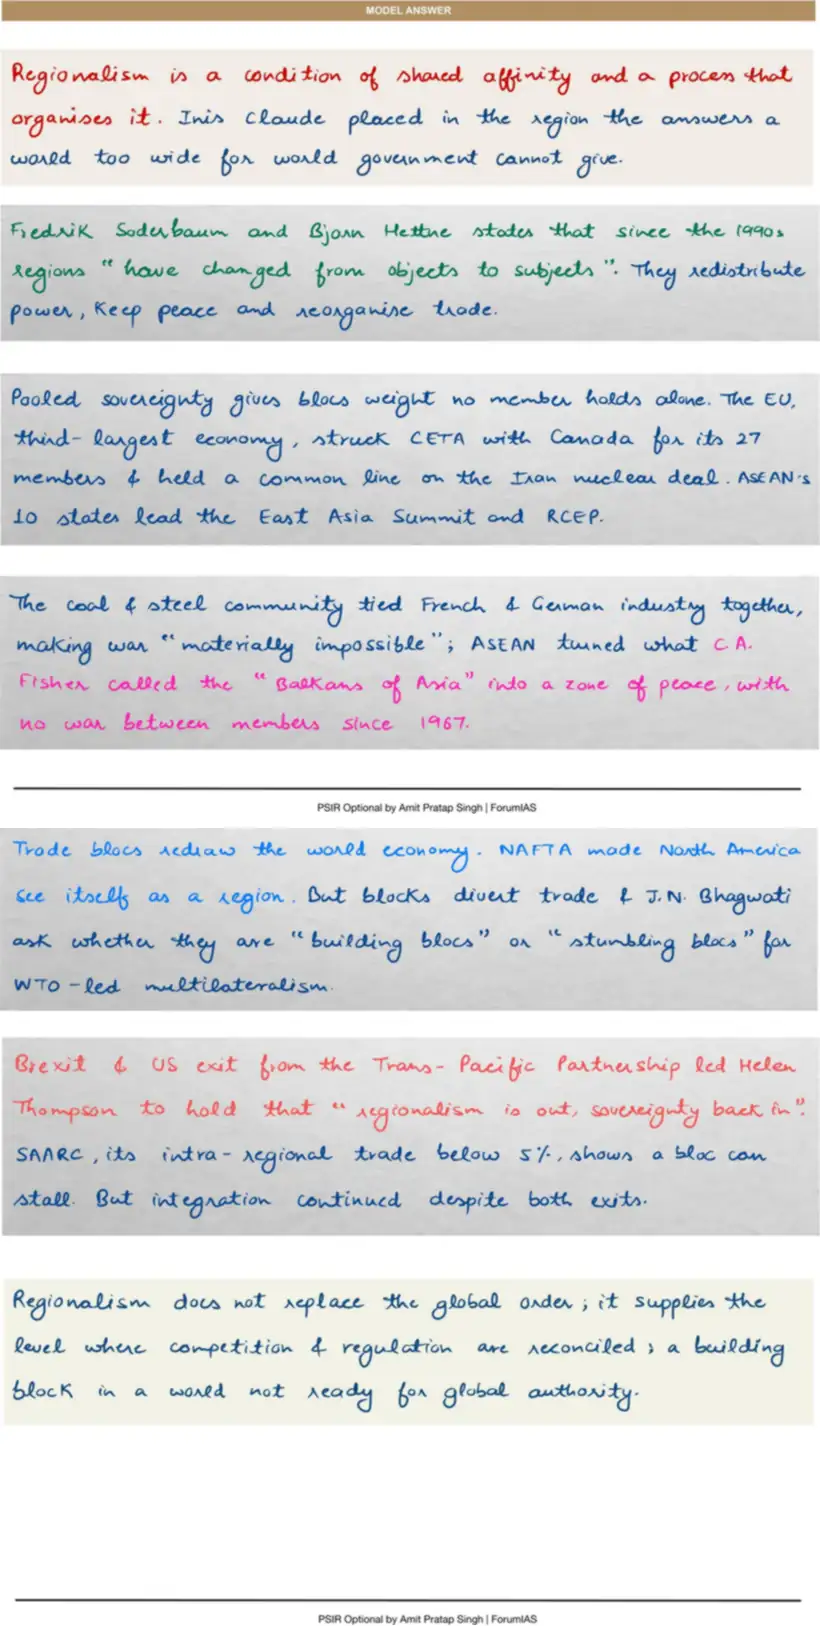 MODEL ANSWER
Regionalism is a condition of shared affinity and a process that
organises it. Inis Claude placed in the region the answers a
world too wide for world government cannot give.
Fredrik Soderbaum and Bjorn Hettne states that since the 1990s
regions "have changed from objects to subjects". They redistribute
power, keep peace and reorganise trade.
Pooled sovereignty gives blocs weight no member holds alone. The EU,
third-largest economy, struck CETA with Canada for its 27
members & held a common line on the Iran nuclear deal. ASEAN's
10 states lead the East Asia Summit and RCEP.
The coal & steel community tied French & German industry together,
making war "materially impossible"; ASEAN turned what C.A.
Fisher called the "Balkans of Asia" into a zone of peace, with
no war between members since 1967.
PSIR Optional by Amit Pratap Singh | ForumIAS
Trade blocs redraw the world economy. NAFTA made North America
see itself as a region. But blocks divert trade & J.N. Bhagwati
ask whether they are "building blocs" or "stumbling blocs" for
WTO-led multilateralism.
Brexit & US exit from the Trans-Pacific Partnership led Helen
Thompson to hold that "regionalism is out, sovereignty back in".
SAARC, its intra-regional trade below 5%, shows a bloc can
stall. But integration continued despite both exits.
Regionalism does not replace the global order; it supplies the
level where competition & regulation are reconciled; a building
block in a world not ready for global authority.
PSIR Optional by Amit Pratap Singh | ForumIAS